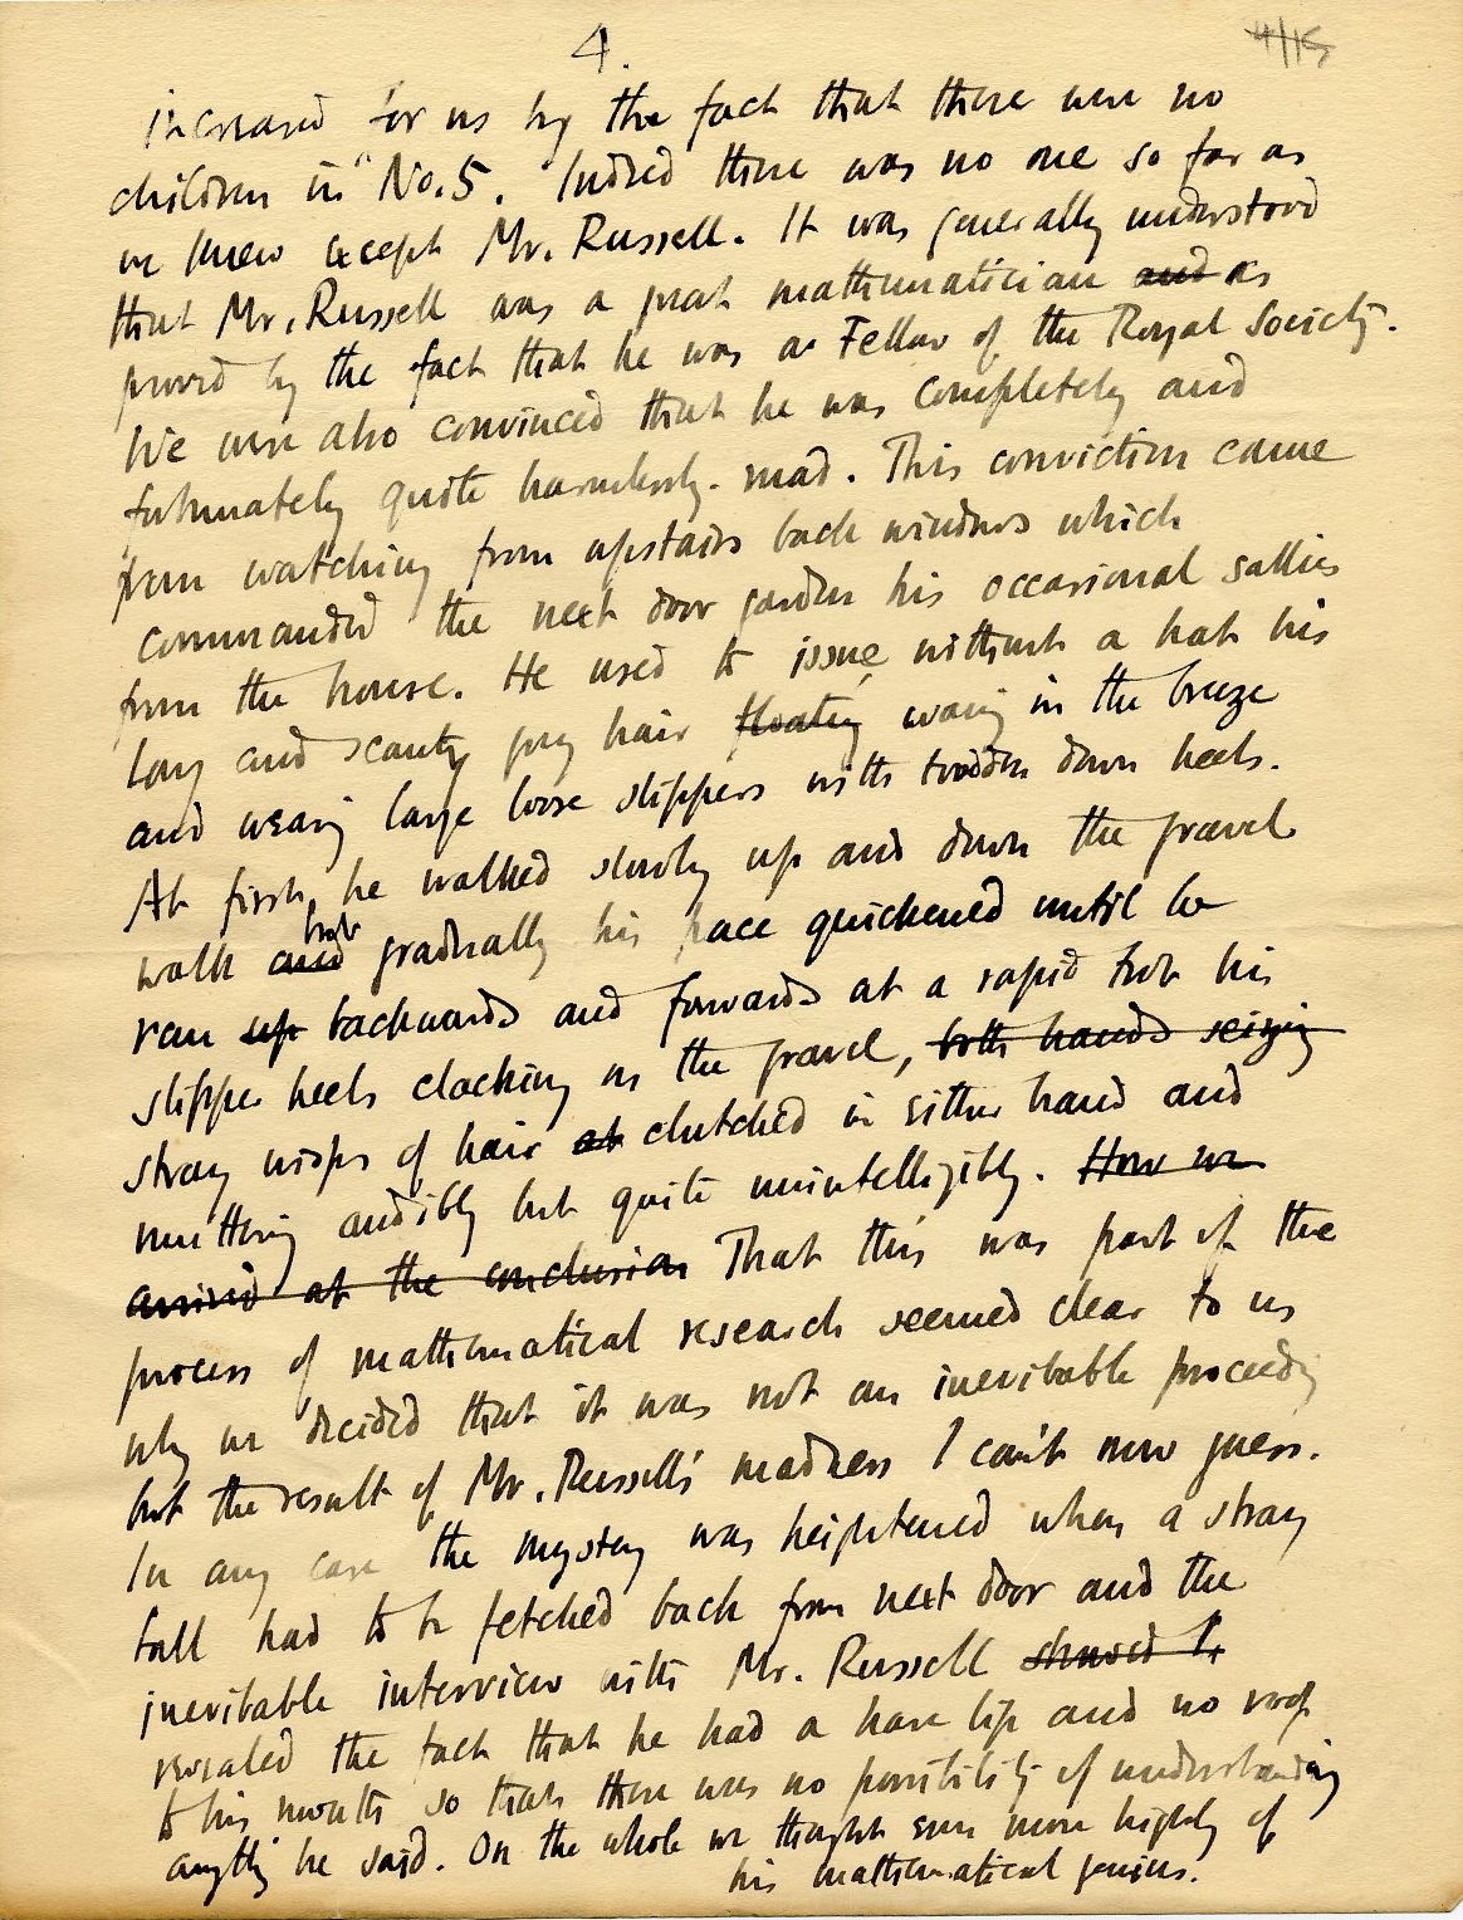 4.
4/15
increased for us by the fact that there were no
children in "No. 5. Indeed there was no one so far as
we knew except Mr. Russell. It was generally understood
that Mr. Russell was a great mathematician and as
proved by the fact that he was a Fellow of the Royal Society.
We were also convinced that he was completely and
fortunately quite harmlessly mad. This conviction came
from watching from upstairs back windows which
commanded the next door garden his occasional sallies
from the house. He used to issue, without a hat his
long and scanty grey hair floating waving in the breeze
and wearing large loose slippers with trodden down heels.
At first, he walked slowly up and down the gravel
walk and but gradually his pace quickened until he
ran up backwards and forwards at a rapid trot his
slipper heels clacking on the gravel, both hands seizing
stray wisps of hair at clutched in either hand and
muttering audibly but quite unintelligibly. How we
arrived at the conclusion That this was part of the
process of mathematical research seemed clear to us
why we decided that it was not an inevitable proceeding
but the result of Mr. Russell's madness I can't now guess.
In any case the mystery was heightened when a stray
ball had to be fetched back from next door and the
inevitable interview with Mr. Russell showed
revealed the fact that he had a hare lip and no roof
to his mouth so that there was no possibility of understanding
anything he said. On the whole we thought even more highly of
his mathematical genius.